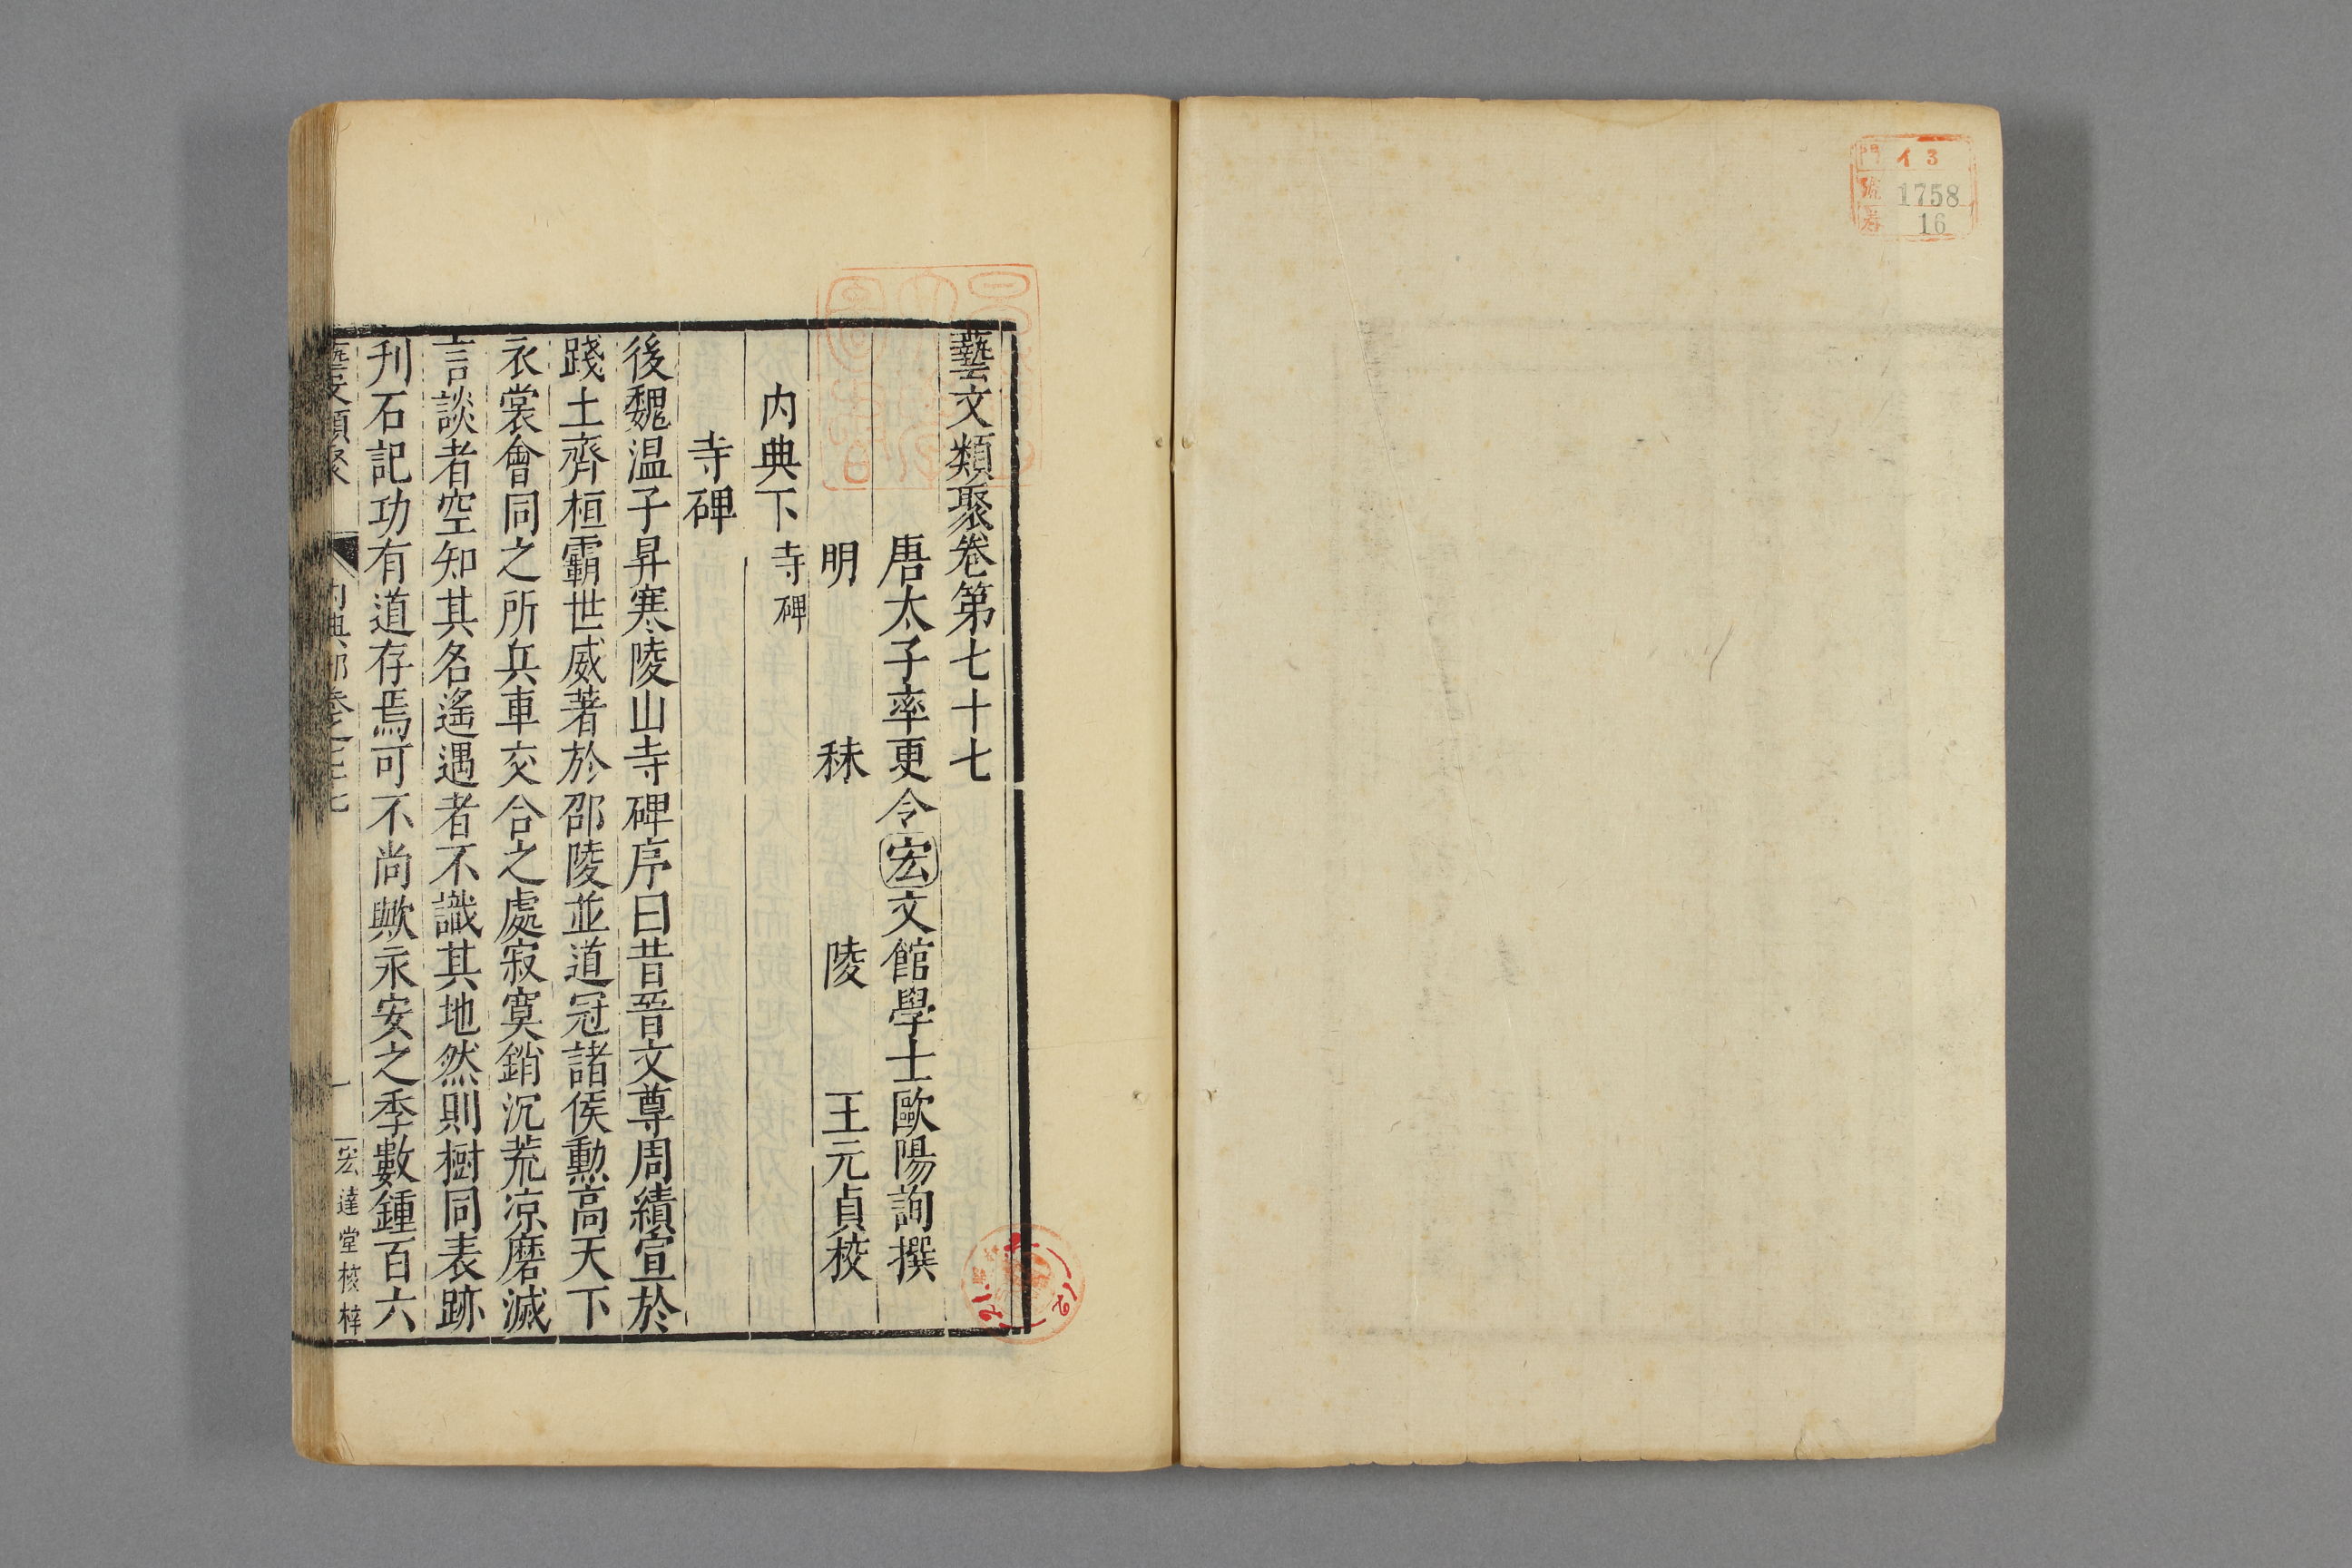 門 イ3
號 1758
卷 16
藝文類聚卷第七十七
唐太子率更令宏文館學士歐陽詢撰
明 秣 陵 王元貞校
内典下 寺碑
寺碑
後魏温子昇寒陵山寺碑序曰昔晉文尊周績宣於
踐土齊桓霸世威著於邵陵並道冠諸侯勲高天下
衣裳會同之所兵車交合之處寂寞銷沉荒凉磨滅
言談者空知其名遙遇者不識其地然則樹同表跡
刋石記功有道存焉可不尚歟永安之季數鍾百六
藝文類聚 内典部卷之七十七 一 宏達堂校梓